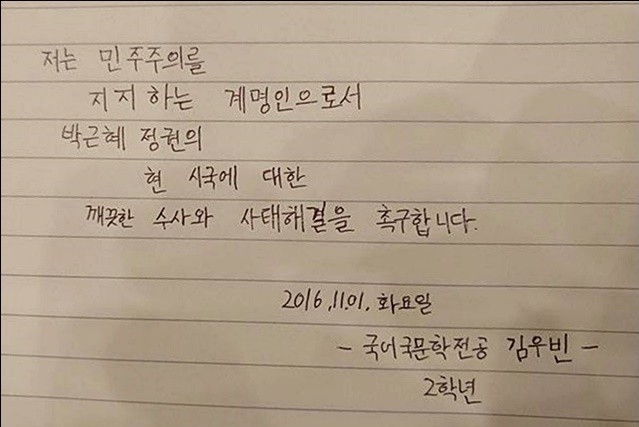 저는 민주주의를
지지하는 계명인으로서
박근혜 정권의
현 시국에 대한
깨끗한 수사와 사태해결을 촉구합니다.
2016.11.01. 화요일
- 국어국문학전공 김우빈 -
2학년